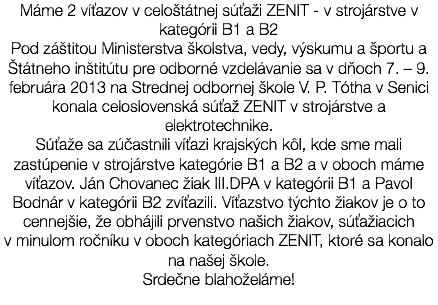 Máme 2 víťazov v celoštátnej súťaži ZENIT - v strojárstve v
kategórii B1 a B2
Pod záštitou Ministerstva školstva, vedy, výskumu a športu a
Štátneho inštitútu pre odborné vzdelávanie sa v dňoch 7. – 9.
februára 2013 na Strednej odbornej škole V. P. Tótha v Senici
konala celoslovenská súťaž ZENIT v strojárstve a
elektrotechnike.
Súťaže sa zúčastnili víťazi krajských kôl, kde sme mali
zastúpenie v strojárstve kategórie B1 a B2 a v oboch máme
víťazov. Ján Chovanec žiak III.DPA v kategórii B1 a Pavol
Bodnár v kategórii B2 zvíťazili. Víťazstvo týchto žiakov je o to
cennejšie, že obhájili prvenstvo našich žiakov, súťažiacich
v minulom ročníku v oboch kategóriach ZENIT, ktoré sa konalo
na našej škole.
Srdečne blahoželáme!